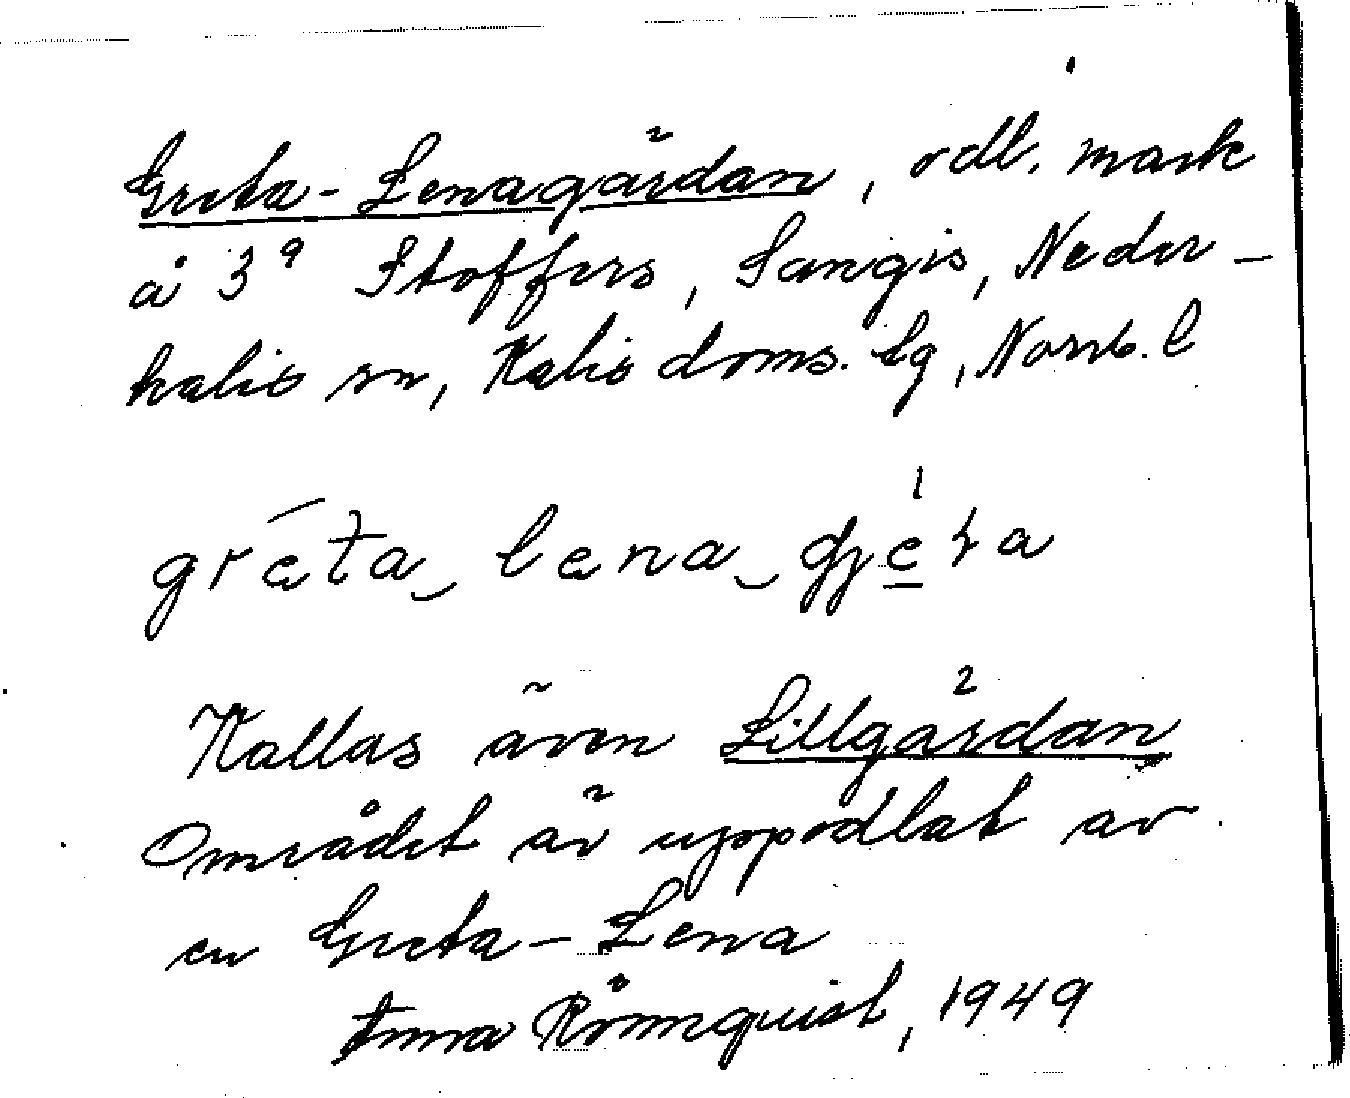 Greta-Lenagärdan, odl. mark
å 3⁹ Stoffers, Sangis, Neder-
kalix sn, Kalix doms. lg, Norrb. l
gréta lena gjeta
Kallas även Lillgärdan
Området är uppodlat av
en Greta-Lena
Anna Rönnquist, 1949